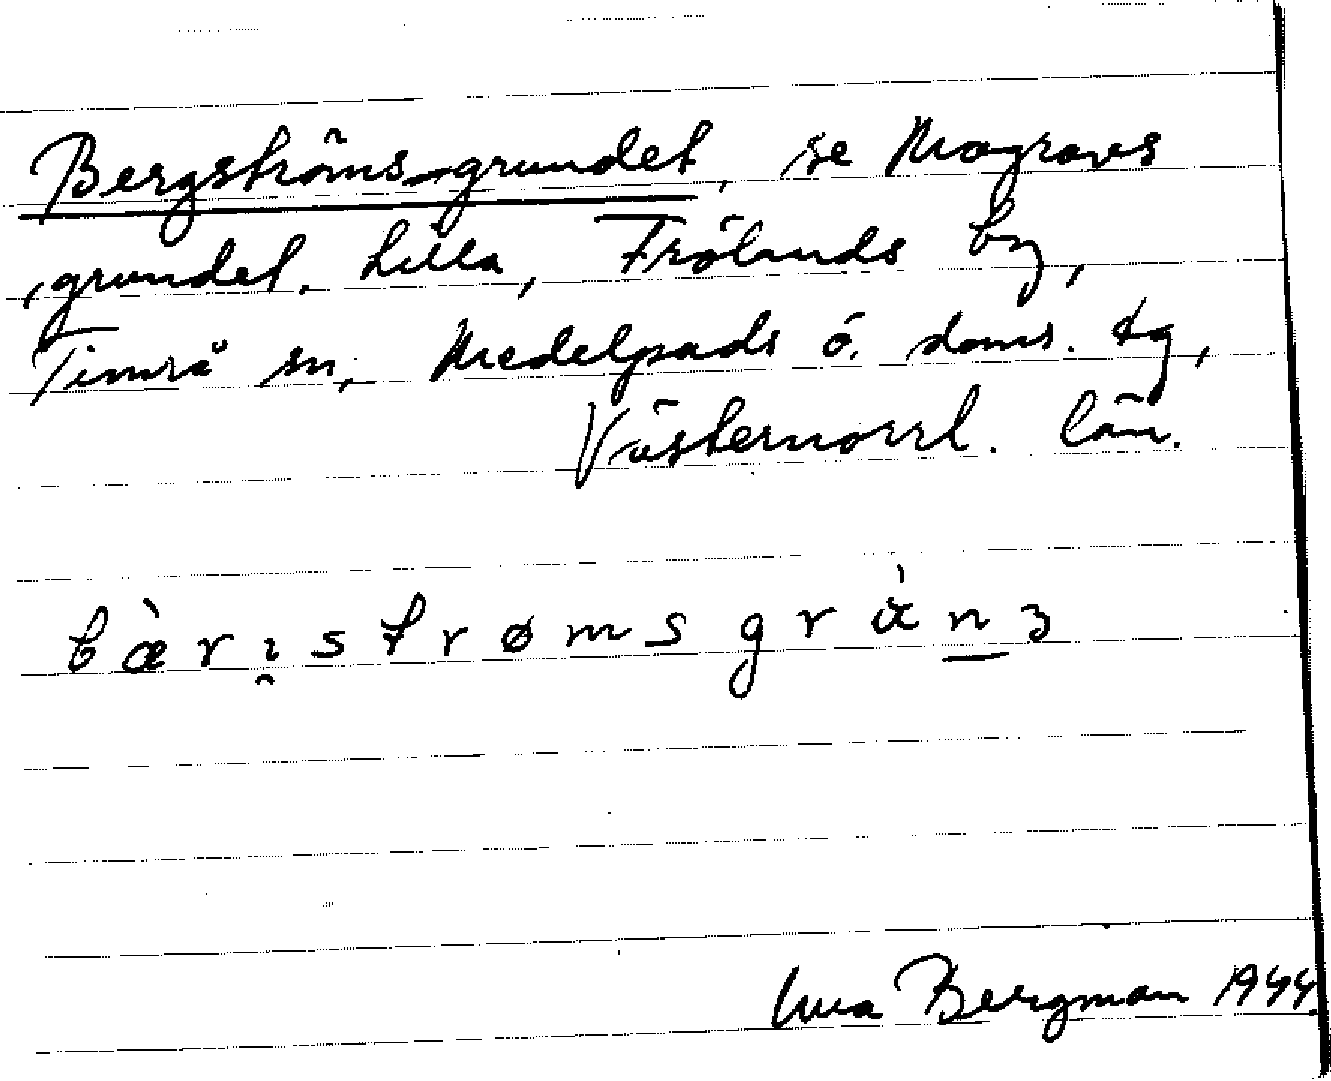 Bergströms-grundet, se Magravs
grundet. Lilla, Frölands by,
Timrå sn, Medelpads ö. doms. tg,
Västernorrl. län.
bær̀ı̯strømsgràn̲ʒ
Bergman 1944